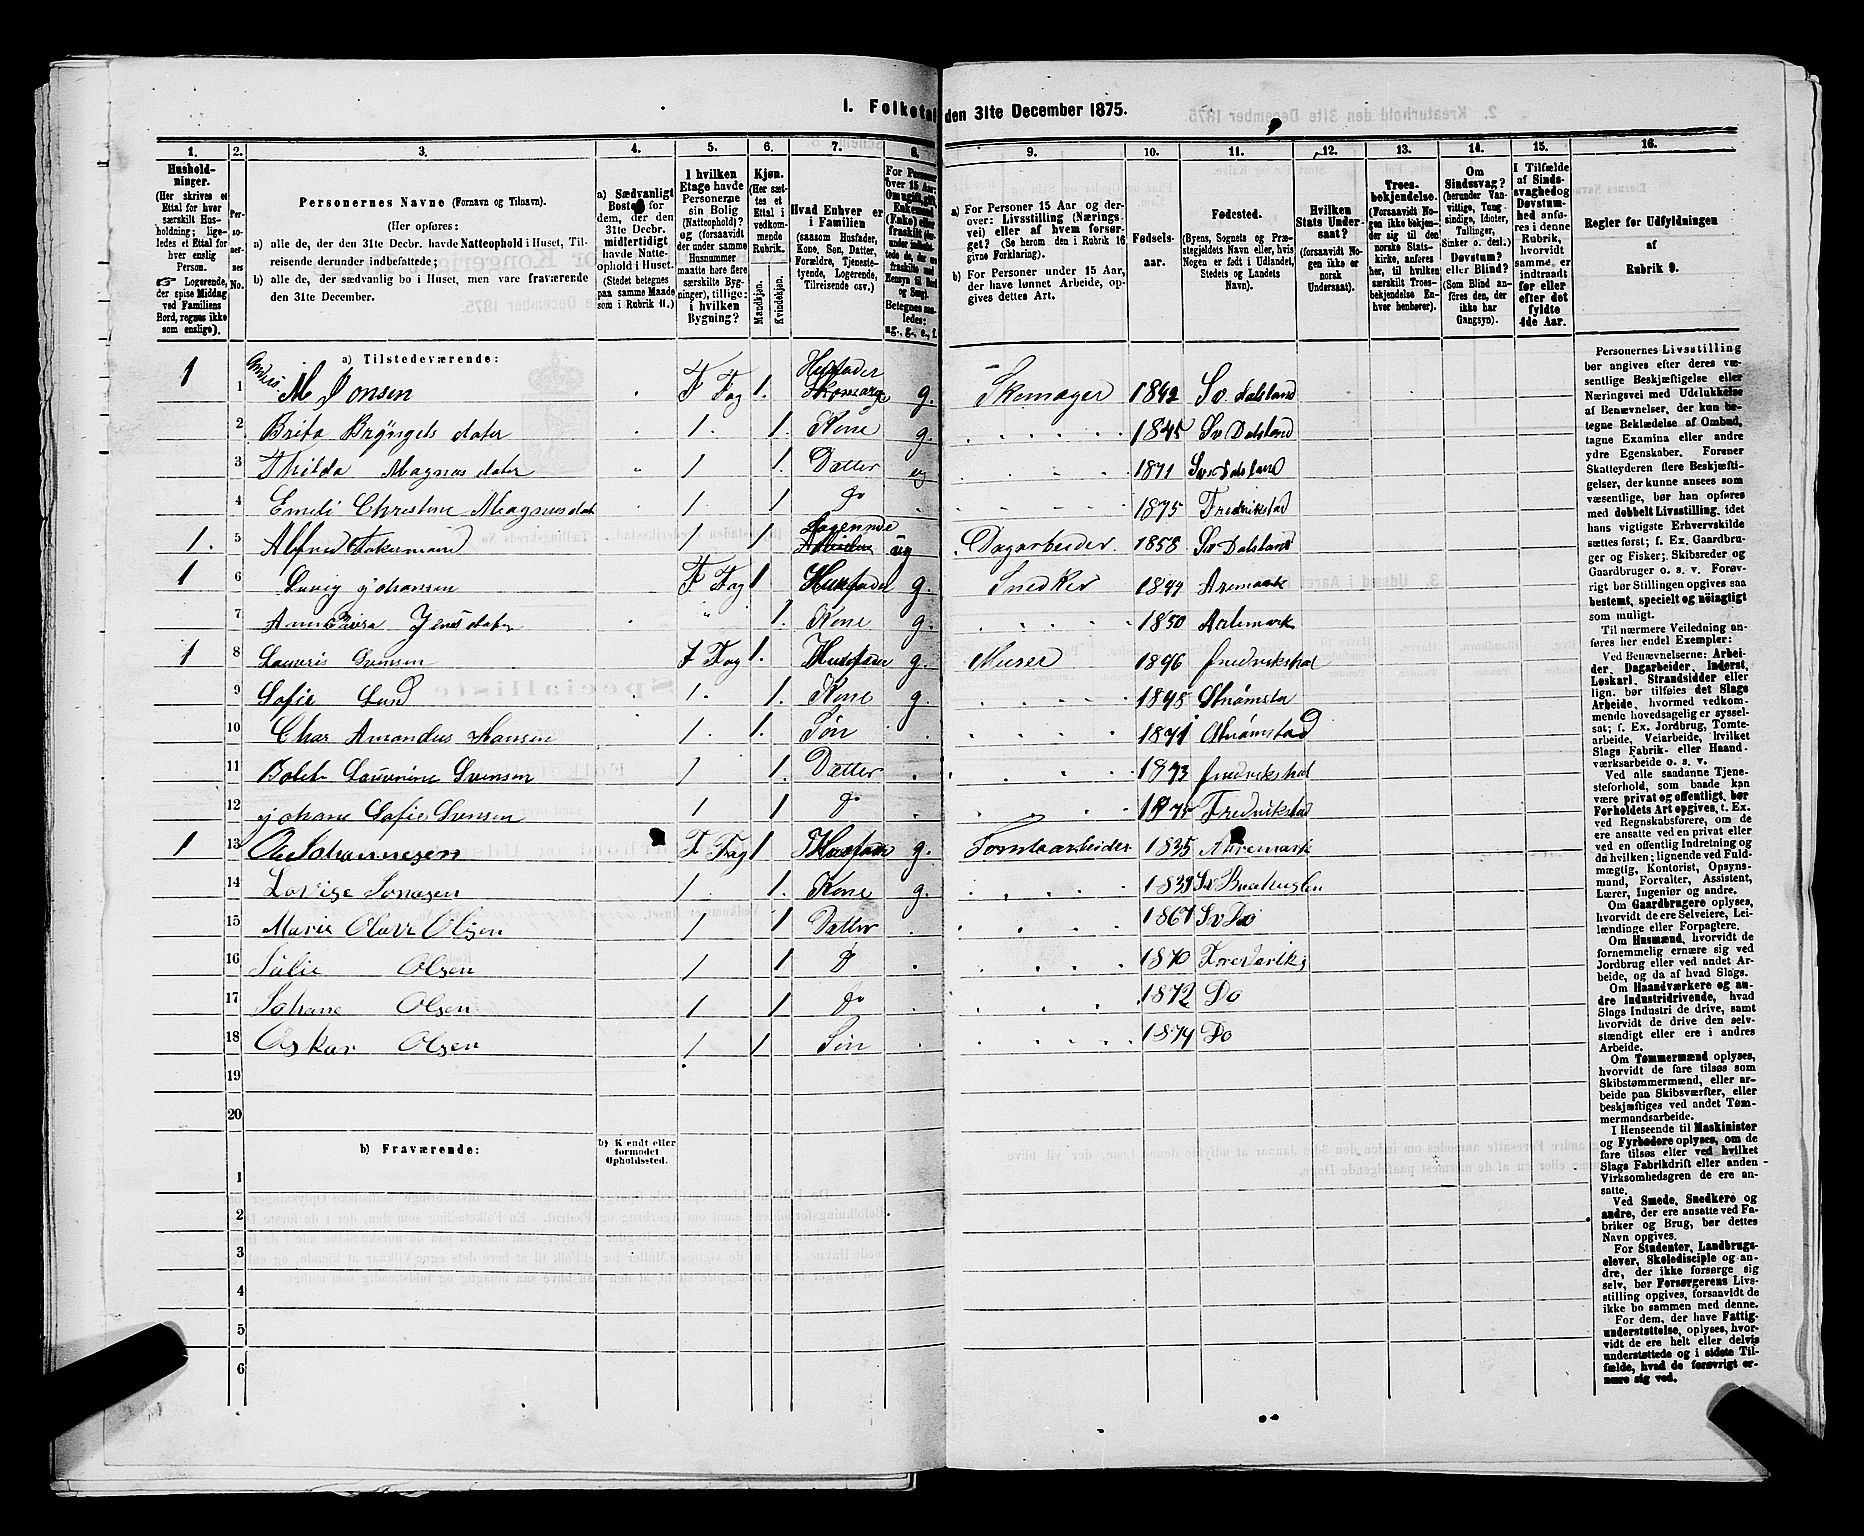 1. Folketal den 31te December 1875.
1. 2. 3. 4. 5. 6. 7. 8. 9. 10. 11. 12. 13. 14. 15. 16.
Husholdninger. (Her skrives et Ettal for hver særskilt Husholdning; ligeledes et Ettal for hver enslig Person. Logerende, der spise Middag ved Familiens Bord, regnes ikke som enslige).
Personernes No.
Personernes Navne (Fornavn og Tilnavn).
(Her opføres:
a) alle de, der den 31te Decbr. havde Natteophold i Huset, Tilreisende derunder indbefattede;
b) alle de, der sædvanlig bo i Huset, men vare fraværende den 31te December.
a) Sædvanligt Bosted for dem, der den 31te Decbr. midlertidigt havde Natteophold i Huset. (Stedet betegnes paa samme Maade som i Rubrik 11.)
I hvilken Etage havde Personerne sin Bolig (Natteophold)? og (forsaavidt der under samme Husnummer maatte høre flere særskilte Bygninger), tillige: i hvilken Bygning?
Kjøn. (Her sættes et Ettal i vedkommende Rubrik.
Mandkjøn. Kvindekjøn.
Hvad Enhver er i Familien (saasom Husfader, Kone, Søn, Datter, Forældre, Tjenestetyende, Logerende, Tilreisende osv.)
a) For Personer 15 Aar og derover: Livsstilling (Næringsvei) eller af hvem forsørget? (Se herom den i Rubrik 16 givne Forklaring).
b) For Personer under 15 Aar, der have lønnet Arbeide, opgives dettes Art.
Fødselsaar.
Fødested. (Byens, Sognets og Præstegjeldets Navn eller, hvis Nogen er født i Udlandet, Stedets og Landets Navn).
Hvilken Stats Undersaat? (forsaavidt Nogen ikke er norsk Undersaat).
Troesbekjendelse. (Forsaavidt Nogen ikke bekjender sig til den norske Statskirke, anføres her, til hvilken særskilt Troesbekjendelse Enhver henhører).
Om Sindssvag? (herunder Vanvittige, Tungsindige, Idioter, Tullinger, Sinker o. desl.) Døvstum? eller Blind? (Som Blind anføres den, der ikke har Gangsyn).
I Tilfælde af Sindssvaghed og Døvstumhed anføres i denne Rubrik, hvorvidt samme er indtraadt før eller efter det fyldte 4de Aar.
Regler for Udfyldningen af Rubrik 9.
a) Tilstedeværende:
1 Anders M Jonsen F Fag 1. Husfader g. Skomager 1842 Sv. Dalsland
2 Brita Bryngels dater 1. 1. Kone g. 1845 Sv Dalsland
3 Thilda Magnus dater 1 1. Datter ug 1871 Sv Dalsland
4 Emeli Christine Magnus dat 1. 1 do 1875 Fredrikstad
1. 5 Alfred Aakermand 1 1 Logerende ug Dagarbeider 1858 Sv Dalsland
1 6 Lurig Johansen F Fag 1 Husfader g. Snedker 1849 Aremark
7 Anne Jens dater 1. Kone g. 1850 Aremark
1 8 Lauris Svensen F Fag 1. Husfader g. Murer 1846 Fredrikshal
9 Sofie Lund 1. 1. Kone g. 1848 Strømsta
10 Char Amandus Hansen 1. 1. Søn 1871 Strømstad
11 Bolet Laurine Svensen 1 1. Datter 1873 Fredrikshal
12 Johane Sofie Svensen 1 1. do 1875 Fredrikstad
1 13 Ole Johannesen F Fag 1 Husfader g. Tomtearbeider 1835 Aremark
14 Lovise Jonasen 1 1. Kone g. 1839 Sv Baahuslen
15 Marie Olave Olsen 1 1 Datter 1867 Sv Do
16 Julie Olsen 1 1. do 1870 Fredriks
17 Johane Olsen 1 1 do 1872 Do
18 Oskar Olsen 1 1 Søn 1874 Do
19
20
b) Fraværende: b) Kjendt eller formodet Opholdssted.
1
2
3
4
5
6
Personernes Livsstilling bør angives efter deres væsentlige Beskjæftigelse eller Næringsvei med Udelukkelse af Benævnelser, der kun betegne Beklædelse af Ombud, tagne Examina eller andre ydre Egenskaber. Forener Skatteyderen flere Beskjæftigelser, der kunne ansees som væsentlige, bør han opføres med dobbelt Livsstilling, idet hans vigtigste Erhvervskilde sættes først; f. Ex. Gaardbruger og Fisker; Skibsreder og Gaardbruger o. s. v. Forøvrigt bør Stillingen opgives saa bestemt, specielt og nøiagtigt som muligt.
Til nærmere Veiledning anføres her endel Exempler:
Ved Benævnelserne: Arbeider, Dagarbeider, Inderst, Løskarl, Strandsidder eller lign. bør tilføies det Slags Arbeide, hvormed vedkommende hovedsagelig er sysselsat; f. Ex. Jordbrug, Tomtearbeide, Veiarbeide, hvilket Slags Fabrik- eller Haandværksarbeide o. s. v.
Ved alle saadanne Tjenesteforhold, som baade kan være privat og offentligt, bør Forholdets Art opgives, t. Ex. ved Regnskabsførere, om de ere ansatte ved en privat eller ved en offentlig Indretning og da hvilken; lignende ved Fuldmægtig, Kontorist, Opsynsmand, Forvalter, Assistent, Lærer, Ingeniør og andre.
Om Gaardbrugere oplyses, hvorvidt de ere Selveiere, Leilændinge eller Forpagtere.
Om Husmænd, hvorvidt de fornemmelig ernære sig ved Jordbrug eller ved andet Arbeide, og da af hvad Slags.
Om Haandværkere og andre Industridrivende, hvad Slags Industri de drive, samt hvorvidt de drive den selvstændigt eller ere i andres Arbeide.
Om Tømmermænd oplyses, hvorvidt de fare tilsøs som Skibstømmermænd, eller arbeide paa Skibsværfter, eller beskjæftiges ved andet Tømmermandsarbeide.
I Henseende til Maskinister og Fyrbødere oplyses, om de fare tilsøs eller ved hvilket Slags Fabrikdrift eller anden Virksomhedsgren de ere ansatte.
Ved Smede, Snedkere og andre, der ere ansatte ved Fabriker og Brug, bør dettes Navn opgives.
For Studenter, Landbrugselever, Skoledisciple og andre, der ikke forsørge sig selv, bør Forsørgerens Livsstilling opgives, forsaavidt de ikke bo sammen med denne.
For dem, der have Fattigunderstøttelse, oplyses, hvorvidt de ere helt eller delvis understøttede og i sidste Tilfælde, hvad de forøvrigt ernære sig ved.